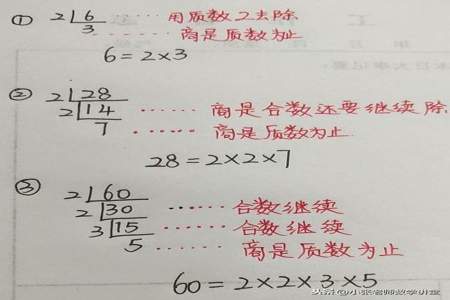 ① 2 6 ······ 用质数2去除
3 ······ 商是质数为止
6=2×3
② 2 28
2 14 ······ 商是合数还要继续除
7 ······ 商是质数为止
28=2×2×7
③ 2 60
2 30 ······ 合数继续
3 15 ······ 合数继续
5 ······ 商是质数为止
60=2×2×3×5